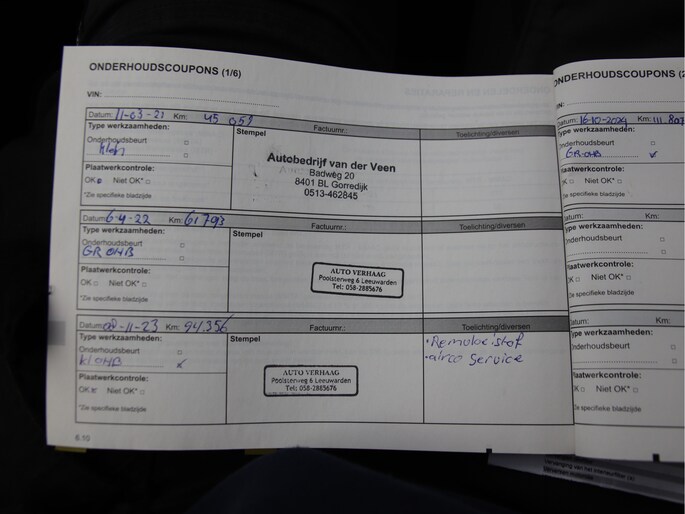 ONDERHOUDSCOUPONS (1/6)
VIN:
Datum: 11-03-21 Km: 45 069
Type werkzaamheden:
Onderhoudsbeurt
Klein
Plaatwerkcontrole:
OK Niet OK*
*Zie specifieke bladzijde
Stempel
Factuurnr.:
Autobedrijf van der Veen
Badweg 20
8401 BL Gorredijk
0513-462845
Toelichting/diversen
Datum: 6-4-22 Km: 61793
Type werkzaamheden:
Onderhoudsbeurt
GR OHB
Plaatwerkcontrole:
OK Niet OK*
*Zie specifieke bladzijde
Stempel
Factuurnr.:
AUTO VERHAAG
Poolsterweg 6 Leeuwarden
Tel: 058-2885676
Toelichting/diversen
Datum: -11-23 Km: 94.356
Type werkzaamheden:
Onderhoudsbeurt
Kl OHB
Plaatwerkcontrole:
OK Niet OK*
*Zie specifieke bladzijde
Stempel
Factuurnr.:
AUTO VERHAAG
Poolsterweg 6 Leeuwarden
Tel: 058-2885676
Toelichting/diversen
• Remvloeistof
• airco Service
6.10
ONDERHOUDSCOUPONS (2
VIN:
Datum: 16-10-2024 Km: 111.807
Type werkzaamheden:
Onderhoudsbeurt
GR OHB
Plaatwerkcontrole:
OK Niet OK*
*Zie specifieke bladzijde
Datum: Km:
Type werkzaamheden:
Onderhoudsbeurt
Plaatwerkcontrole:
OK Niet OK*
*Zie specifieke bladzijde
Datum: Km:
Type werkzaamheden:
Onderhoudsbeurt
Plaatwerkcontrole:
OK Niet OK*
*Zie specifieke bladzijde